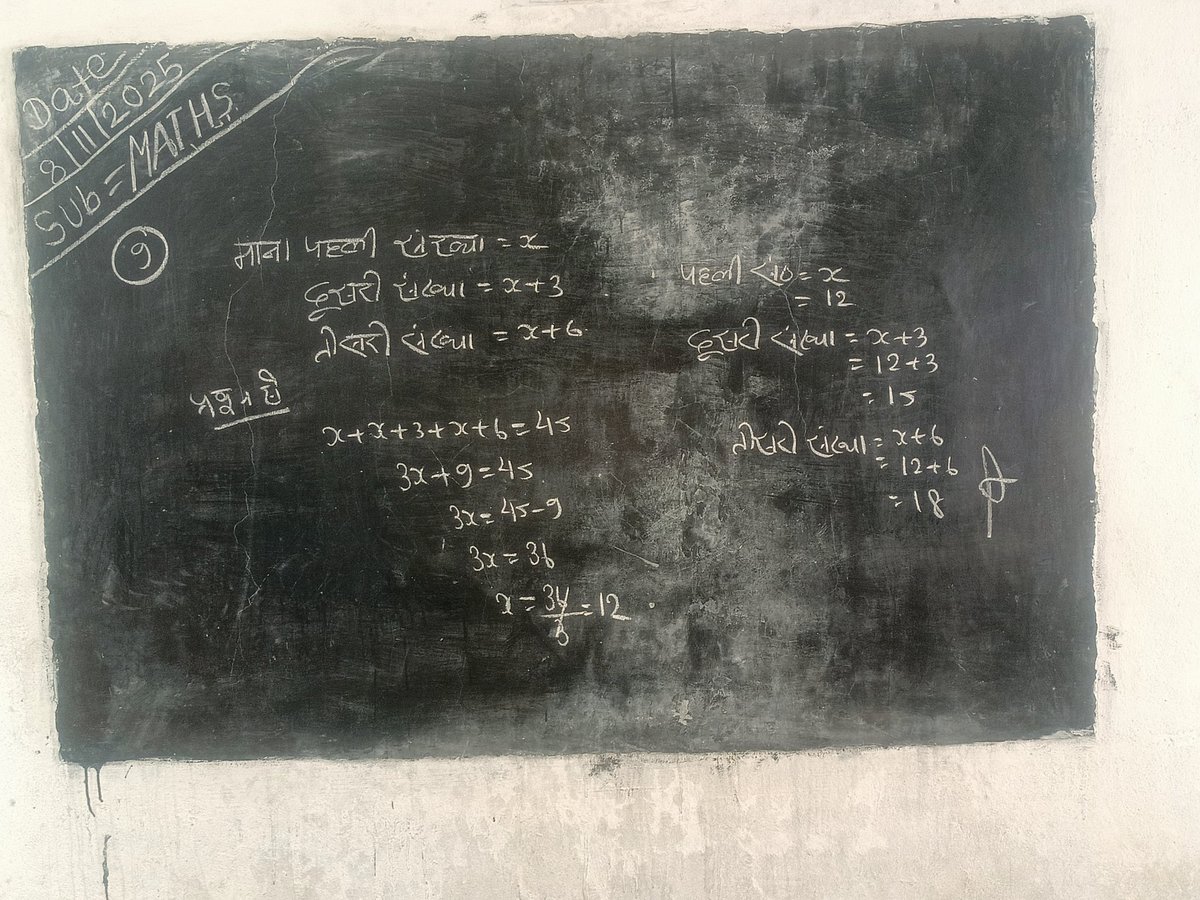 Date
8/11/2025
Sub = MATHS
9
माना पहली संख्या = x
दूसरी संख्या = x+3
तीसरी संख्या = x+6
प्रश्न से
x+x+3+x+6=45
3x+9=45
3x=45-9
3x=36
x=36/3=12
पहली सं०=x
=12
दूसरी संख्या=x+3
=12+3
=15
तीसरी संख्या=x+6
=12+6
=18